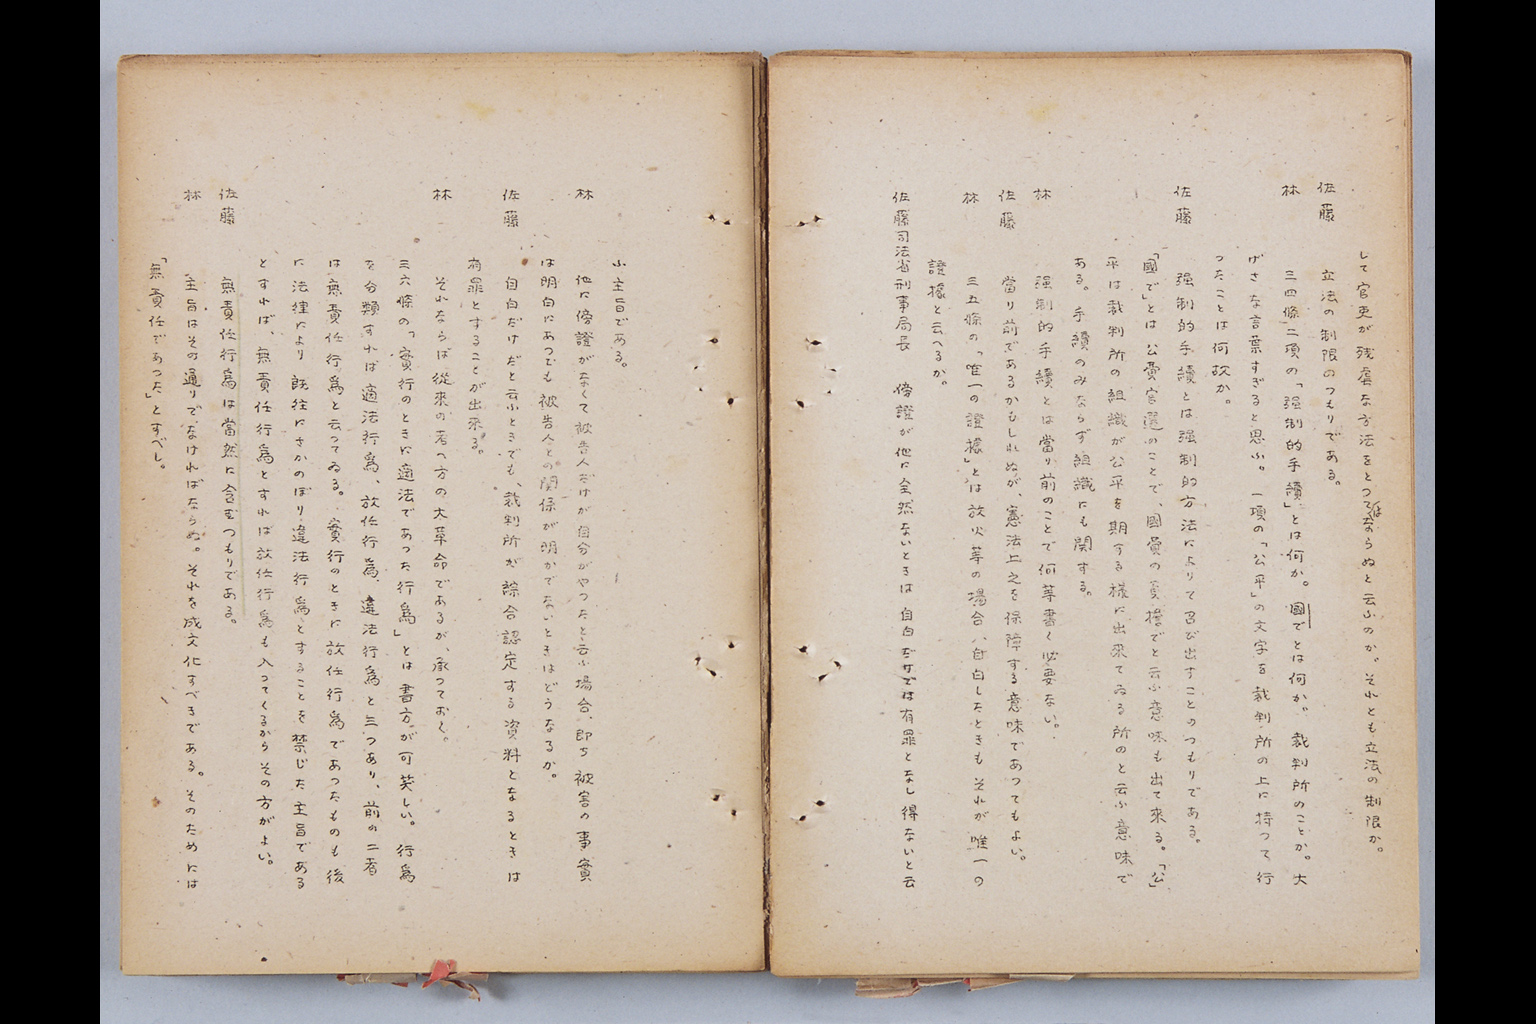 して官吏が残虐な方法をとつてはならぬと云ふのか。それとも立法の制限か。
佐藤　立法の制限のつもりである。
林　三四條二項の「强制的手續」とは何か。國でとは何か。裁判所のことか。大
げさな言葉すぎると思ふ。一項の「公平」の文字を裁判所の上に持つて行
つたことは何故か。
佐藤　强制的手續とは强制的方法によりて召び出すことのつもりである。
「國で」とは公費官選のことで、國員の負擔でと云ふ意味も出て來る。「公」
平は裁判所の組織が公平を期する樣に出來てゐる所のと云ふ意味で
ある。手續のみならず組織にも関する。
林　强制的手續とは當り前のことで何等書く必要ない。
佐藤　當り前であるかもしれぬが、憲法上之を保障する意味であつてもよい。
林　三五條の「唯一の證據」とは放火等の場合八自白したときもそれが唯一の
證據と云へるか。
佐藤司法省刑事局長　傍證が他に全然ないときは自白だけでは有罪となし得ないと云
ふ主旨である。
林　他に傍證がなくて被告人だけが自分がやつたと云ふ場合、即ち被害の事實
は明白にあつても被告人との関係が明かでないときはどうなるか。
佐藤　自白だけだと云ふときでも、裁判所が綜合認定する資料となるときは
有罪とすることが出來る。
林　それならば從來の考へ方の大革命であるが、承つておく。
三六條の「實行のときに適法であつた行爲」とは書方が可笑しい。行爲
を分類すれば適法行爲、放任行爲、違法行爲と三つあり、前の二者
は無責任行爲と云つてゐる。實行のときに放任行爲であつたものも後
に法律により既往にさかのぼり違法行爲とすることを禁じた主旨である
とすれば、無責任行爲とすれば放任行爲も入つてくるからその方がよい。
佐藤　無責任行爲は當然に含むつもりである。
林　主旨はその通りでなければならぬ。それを成文化すべきである。そのためには
「無責任であつた」とすべし。